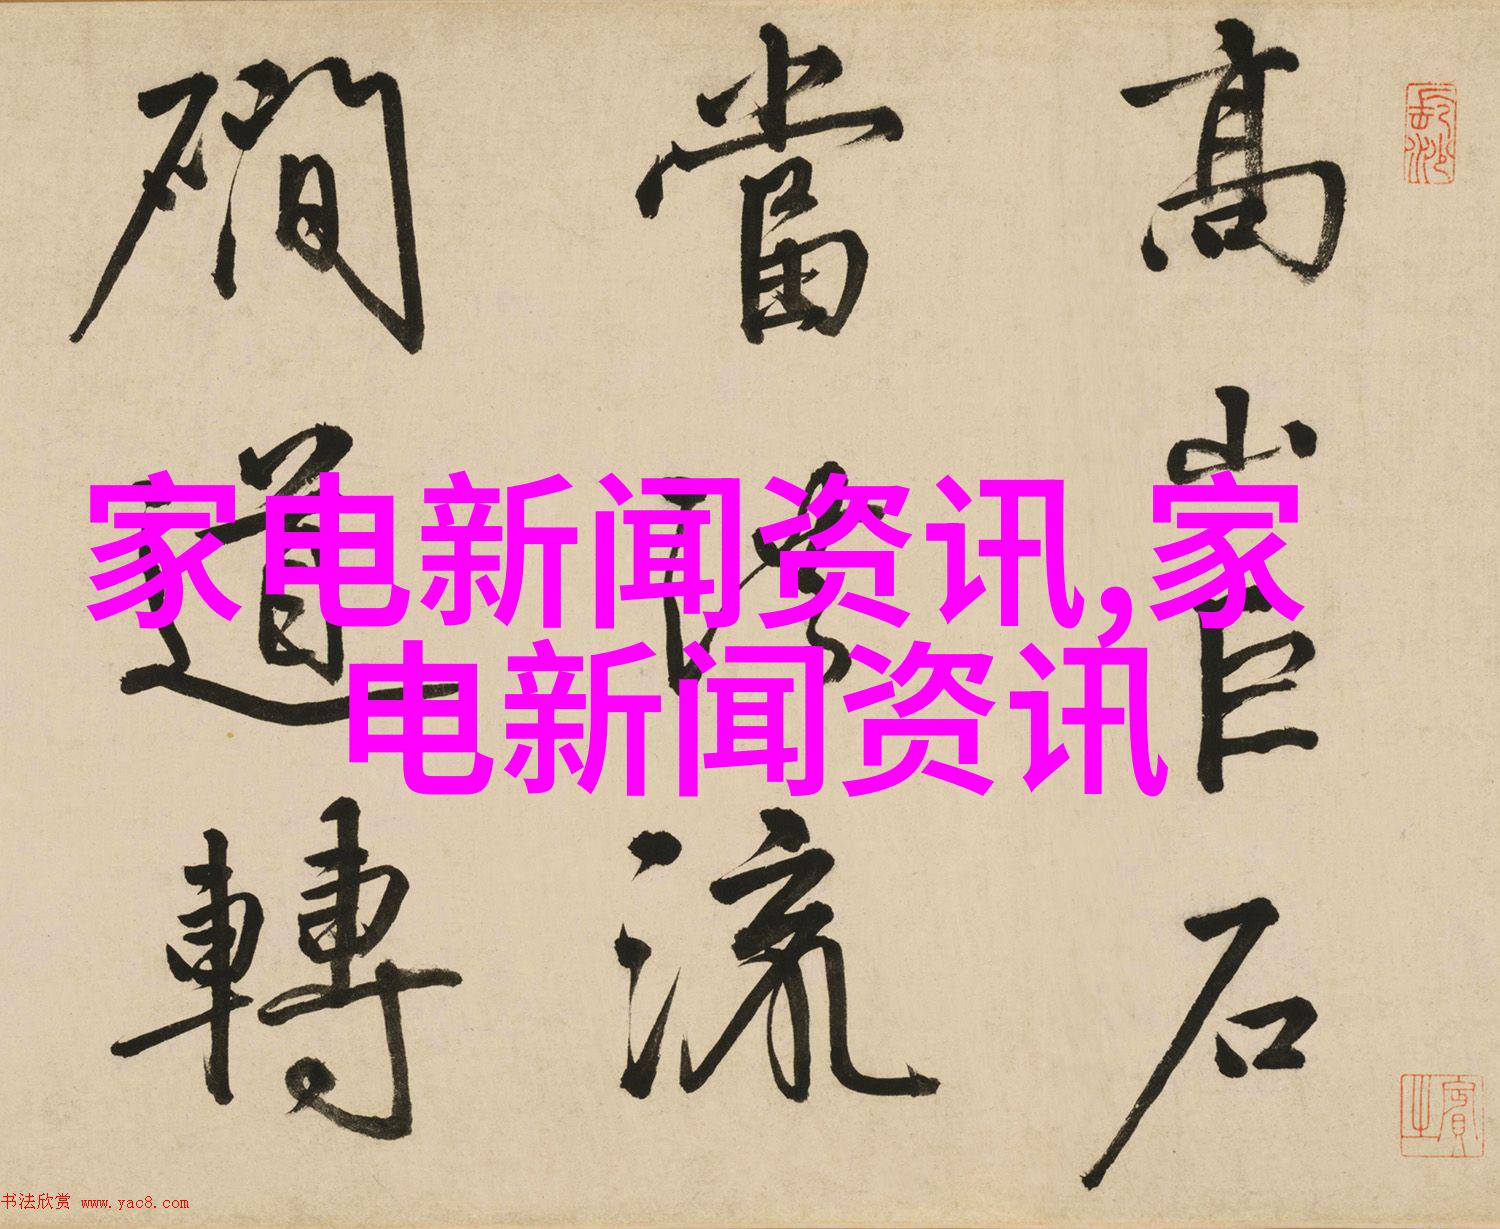 高石
當流
磵道轉
家电新闻资讯,家
电新闻资讯
書法欣赏 www.yac8.com